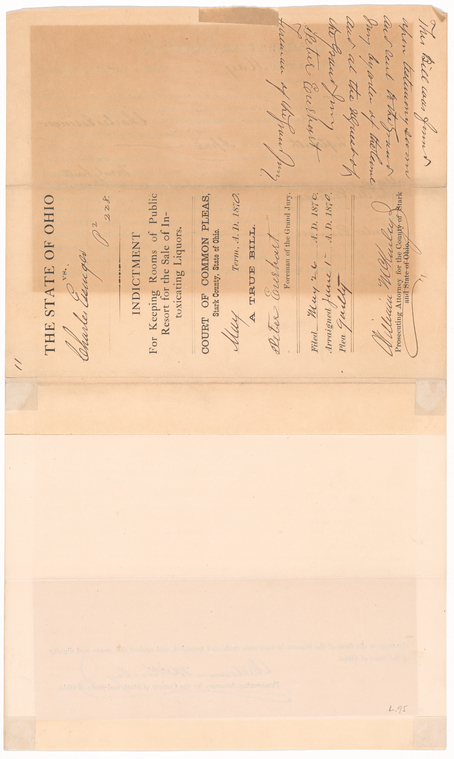 THE STATE OF OHIO
vs.
Charles
P 2 228.
INDICTMENT
For Keeping Rooms of Public
Resort for the Sale of In-
toxicating Liquors.
COURT OF COMMON PLEAS,
Stark County, State of Ohio.
May Term, A. D. 1870.
A TRUE BILL.
Peter Everhart
Foreman of the Grand Jury.
Filed May 26 A. D. 1870.
Arraigned June 1st A. D. 1870.
Plea Guilty
William McKinley Jr
Prosecuting Attorney for the County of Stark
and State of Ohio.
This Bill was found
upon testimony sworn
and sent to the Grand
Jury by order of the Court
and at the request of
the Grand Jury
Peter Everhart
Foreman of the Grand Jury
11
L-95